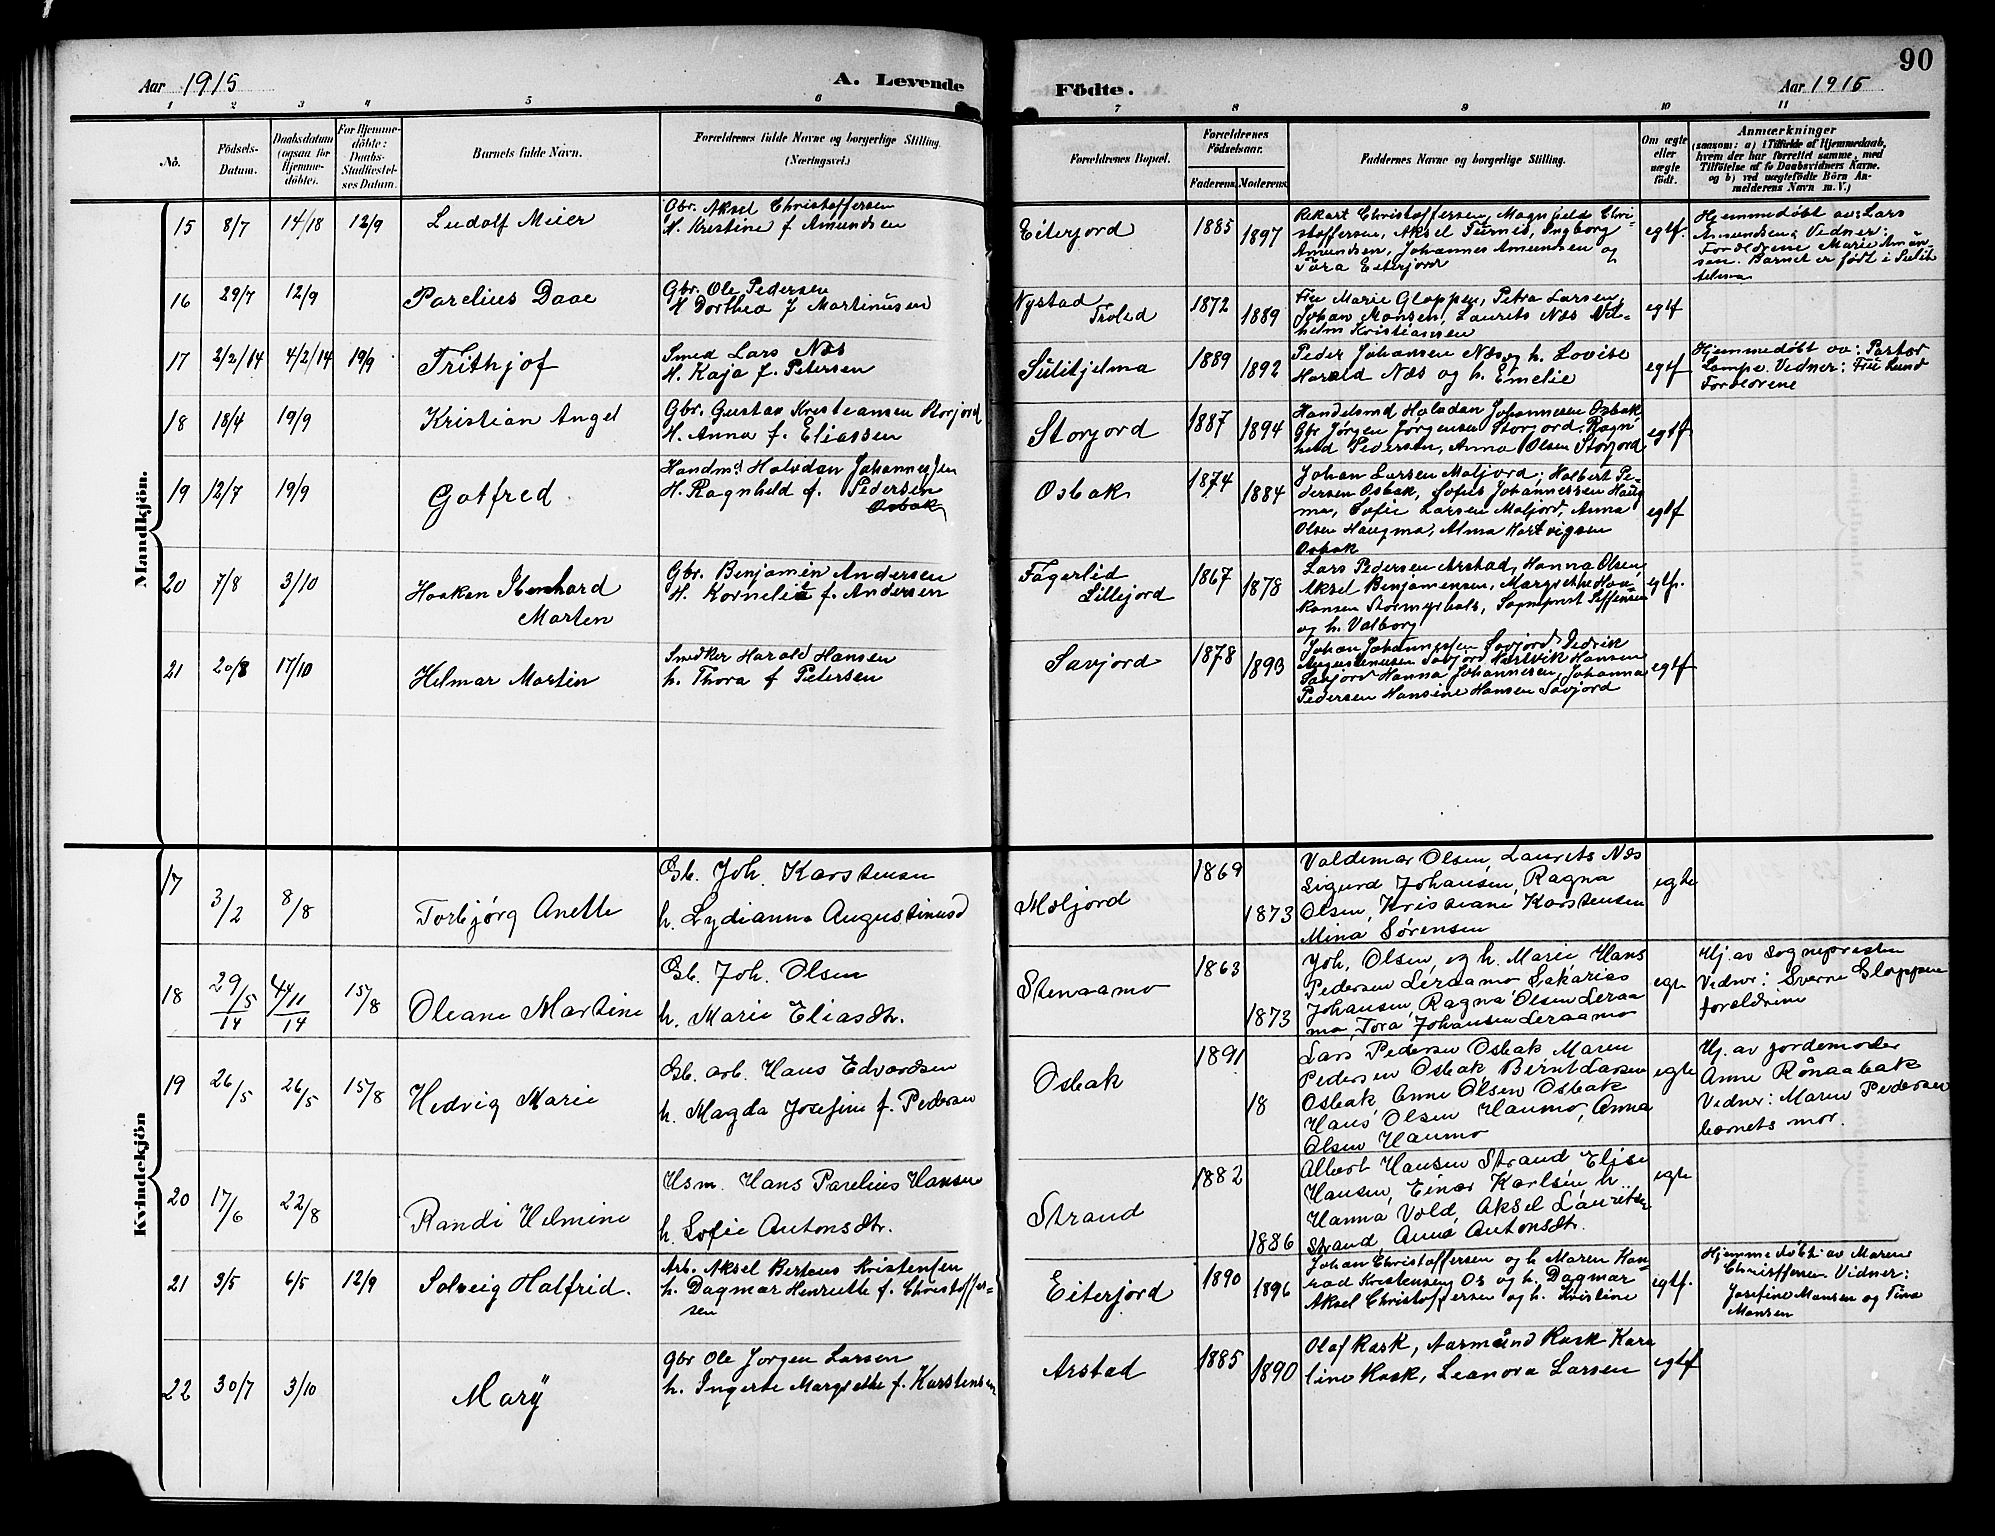 90
Aar 1915
A. Levende
Födte.
Aar 1915
1 2 3 4 5 6 7 8 9 10 11
No.
Födsels-
Datum.
Daabsdatum
(ogsaa for
Hjemme-
döbte).
For Hjemme-
döbte:
Daabs-
Stadfæstel-
ses Datum.
Barnets fulde Navn.
Forældrenes fulde Navne og borgerlige Stilling.
(Næringsvei.)
Forældrenes Bopæl.
Forældrenes
Födselsaar.
Faderens. Moderens.
Faddernes Navne og borgerlige Stilling.
Om ægte
eller
uægte
födt.
Anmærkninger
(saasom: a) i Tilfælde af Hjemmedaab,
hvem der har forrettet samme, med
Tilföielse af to Daabsvidners Navne.
og b) ved uægtefödte Börn An-
melderens Navn m. V.)
Mandkjön.
15 8/7 14/18 12/9 Ludolf Meier
Gbr. Aksel Christoffersen
H. Kristine f Amundsen
Eiterjord
1885 1897
Rikart Christoffersen, Magnhild Chri-
stoffersen, Aksel Furnes, Ingborg
Amundsen, Johannes Amundsen og
Tora Eiterjord
egtf.
Hjemmedøbt av: Lars
Amundsen, Vidner:
Forældrene Marie Amun-
sen. Barnet er født i Sulit
telma
16 29/7 12/9 Parelius Daae
Gbr. Ole Pedersen
H Dorthea f Martinussen
Nystad
1872 1889
Fru Marie Gloppen, Petra Larsen,
Johan Monsen, Laurits Næs Vil-
helm Kristiansen
egtf
17 2/2/14 4/2/14 19/9 Frithjof
Smed Lars Næs
H. Kaja f. Petersen
Sulitjelma
1889 1892
Peder Johansen Næs og h. Lovise
Harald Næs og h. Emelie
egtf
Hjemmedøbt av: Pastor
Lampe. Vidner: Fru Lund
Forældrene
18 18/4 19/9 Kristian Angel
Gbr. Gustav Kristiansen Storjord
H. Anna f. Eliassen
Storjord
1887 1894
Handelsmd Halvdan Johannesen Osbak
Gbr Jørgen Jørgensen Storjord, Ragn
hild Pedersen, Anna Olsen Storjord
egtf
19 12/7 19/9 Gotfred
Handm. Halvdan Johannessen
H. Ragnhild f. Pedersen
Osbak
Osbak
1874 1884
Johan Larsen Moljord, Halbert Pe-
dersen Osbak, Sofus Johannessen Haug
ma, Sofie Larsen Moljord, Anna
Olsen Haugma, Alma Hartvigsen
Osbak
egtf
20 7/8 3/10 Haakon Bernhard
Morten
Gbr. Benjamin Andersen
H. Kornelia f. Andersen
Fagerlid
Lillejord
1867 1878
Lars Pedersen Arstad, Hanna Olsen
Aksel Benjaminsen, Margrethe Haa-
kansen Stormyrbak, Sogneprest Steffensen
og h. Valborg
egtf.
21 20/8 17/10 Helmar Martin
Snedker Harald Hansen
h. Thora f Petersen
Savjord
1878 1893
Johan Johannessen Savjord, Didrik
Augustinussen Savjord Hartvik Hansen
Savjord Hanna Johannesen, Johanna
Pedersen Hansine Hansen Savjord
egtf
Kvindekjön
17 3/2 8/8 Torbjørg Anette
Gb. Joh. Karstensen
h. Lydianna Augustinusd
Moljord
1869 1873
Valdemar Olsen, Laurits Næs
Sigurd Johansen, Ragna
Olsen, Kristiane Karstensen
Mina Sørensen
egte
18 29/5/14 4/11/14 15/8 Oleane Martine
Gb. Joh. Olsen
h. Marie Eliasdtr.
Stenaamo
1863 1873
Joh. Olsen, og h. Marie Hans
Pedersen Leraamo Sakarias
Johansen, Ragna Olsen Leraa
mo, Tora Johansen Leraamo
egte
Hj. av sognepresten
Vidner: Sverre Gloppen
forældrene
19 26/5 26/5 15/8 Hedvig Marie
Gb. arb. Hans Edvardsen
h. Magda Josefine f. Pedersen
Osbak
1891 18
Lars Pedersen Osbak Maren
Pedersen Osbak, Bernt Larsen
Osbak Anne Olsen Osbak
Hans Olsen Haumo, Anna
Olsen Haumo
egte
Hj. av jordemoder
Anne Rønaabak
Vidner: Maren Pedersen
barnets mor.
20 17/6 22/8 Randi Helmine
Hsm. Hans Parelius Hansen
h. Sofie Antonsdtr.
Strand
1882 1886
Albert Hansen Strand Elise
Hansen, Einar Karlsen h.
Hanna Vold, Aksel Lauritsen
Strand, Anna Antonsdtr.
egte
21 3/5 6/5 12/9 Solveig Halfrid.
Arb. Aksel Berteus Kristensen
h. Dagmar Henriette f. Christoffer-
sen
Eiterjord
1890 1896
Johan Christoffersen og h Maren Kon-
rad Kristensen, Os og h. Dagmar
Aksel Christoffersen og h. Kristine
egtf.
Hjemmedøbt av Maren
Christffersen Vidner:
Josefine Monsen og Tina
Monsen
22 30/7 3/10 Mary
gbr Ole Jørgen Larsen
h. Ingerte Margrethe f. Karstensen
Arstad
1885 1890
Olaf Rask, Aarmund Rask Karo
line Rask, Leanora Larsen
egtf